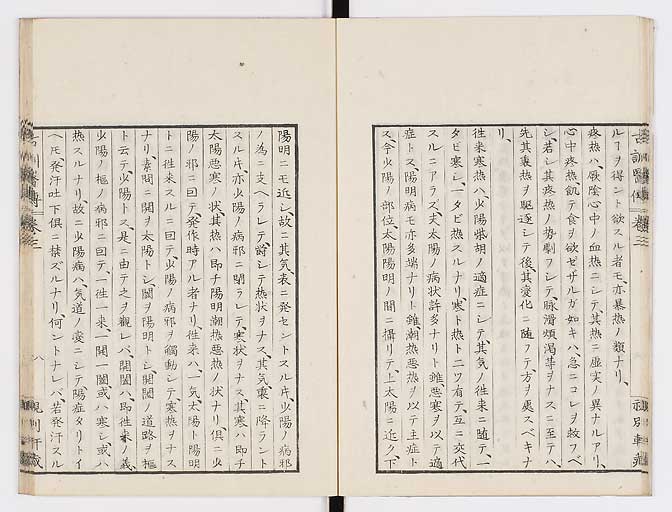 ルヿヲ得ント欲スル者モ、亦暴熱ノ類ナリ、
疼熱ハ、厥陰心中ノ血熱ニシテ、其熱ニ虚実ノ異ナルアリ、
心中疼熱、飢テ食ヲ欲セザルガ如キハ、急ニコレヲ救フベ
シ、若シ其疼熱ノ勢劇フシテ、脉滑煩渇等ヲナスニ至テハ、
先其裏熱ヲ驅逐シテ後、其變化ニ随フテ、方ヲ處スベキナ
リ、
往来寒熱ハ、少陽柴胡ノ適症ニシテ、其気ノ往来ニ随テ、一
タビ寒シ、一タビ熱スルナリ、寒ト熱ト二ツ有テ、互ニ交代
スルニアラズ、夫太陽ノ病状許多ナリト雖、悪寒ヲ以テ適
症トス、陽明病モ亦多端ナリト雖、潮熱悪熱ヲ以テ主症ト
ス、今少陽ノ部位、太陽陽明ノ間ニ攝リテ、上太陽ニ近ク、下
陽明ニモ近シ、故ニ其気表ニ発セントスル片、少陽ノ病邪
ノ為ニ支ヘラレテ、欝シテ熱状ヲナス、其気裏ニ降ラント
スル片、亦少陽ノ病邪ニ閉ラレテ、寒状ヲナス、其寒ハ即チ
太陽悪寒ノ状、其熱ハ即チ陽明潮熱悪熱ノ状ナリ、倶ニ少
陽ノ邪ニ因テ、発作時アル者ナリ、往来ハ、一気太陽ト陽明
トニ往来スルニ因テ、少陽ノ病邪ヲ觸動シテ、寒熱ヲナス
ナリ、素問ニ開ヲ太陽トシ、闔ヲ陽明トシ、開闔ノ道路ヲ樞
ト云テ、少陽トス、是ニ由テ之ヲ觀レバ、開闔ハ、即往来ノ義、
少陽ノ樞ノ病邪ニ因テ、一往一来、一開一闔、或ハ寒シ或ハ
熱スルナリ、故ニ少陽病ハ、気道ノ変ニシテ、陽症タリトイ
ヘ𪜈、発汗吐下倶ニ禁ズルナリ、何ントナレバ、若発汗スル